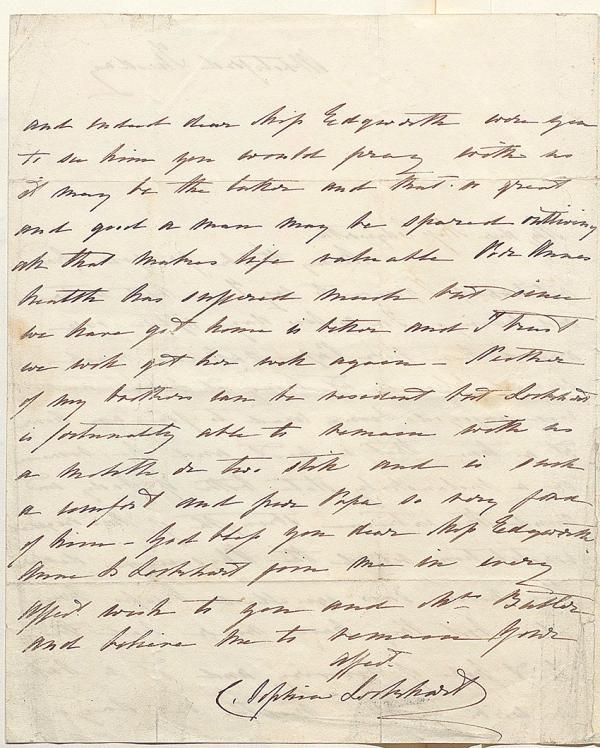 and indeed dear Miss Edgworth were you
to see him you would pray with us
it may be the latter and that so great
and good a man may be spared outliving
all that makes life valuable Poor Annes
health has suffered much but since
we have got home is better and I trust
we will get her well again – Neither
of my brothers can be resident but Lockhart
is fortunatly able to remain with us
a month or two still and is such
a comfort and poor Papa so very fond
of him – God bless you dear Miss Edgworth
Anne & Lockhart join me in every
affect. wish to you and Mrs. Butler
and believe me to remain your
affect.
C. Sophia Lockhart